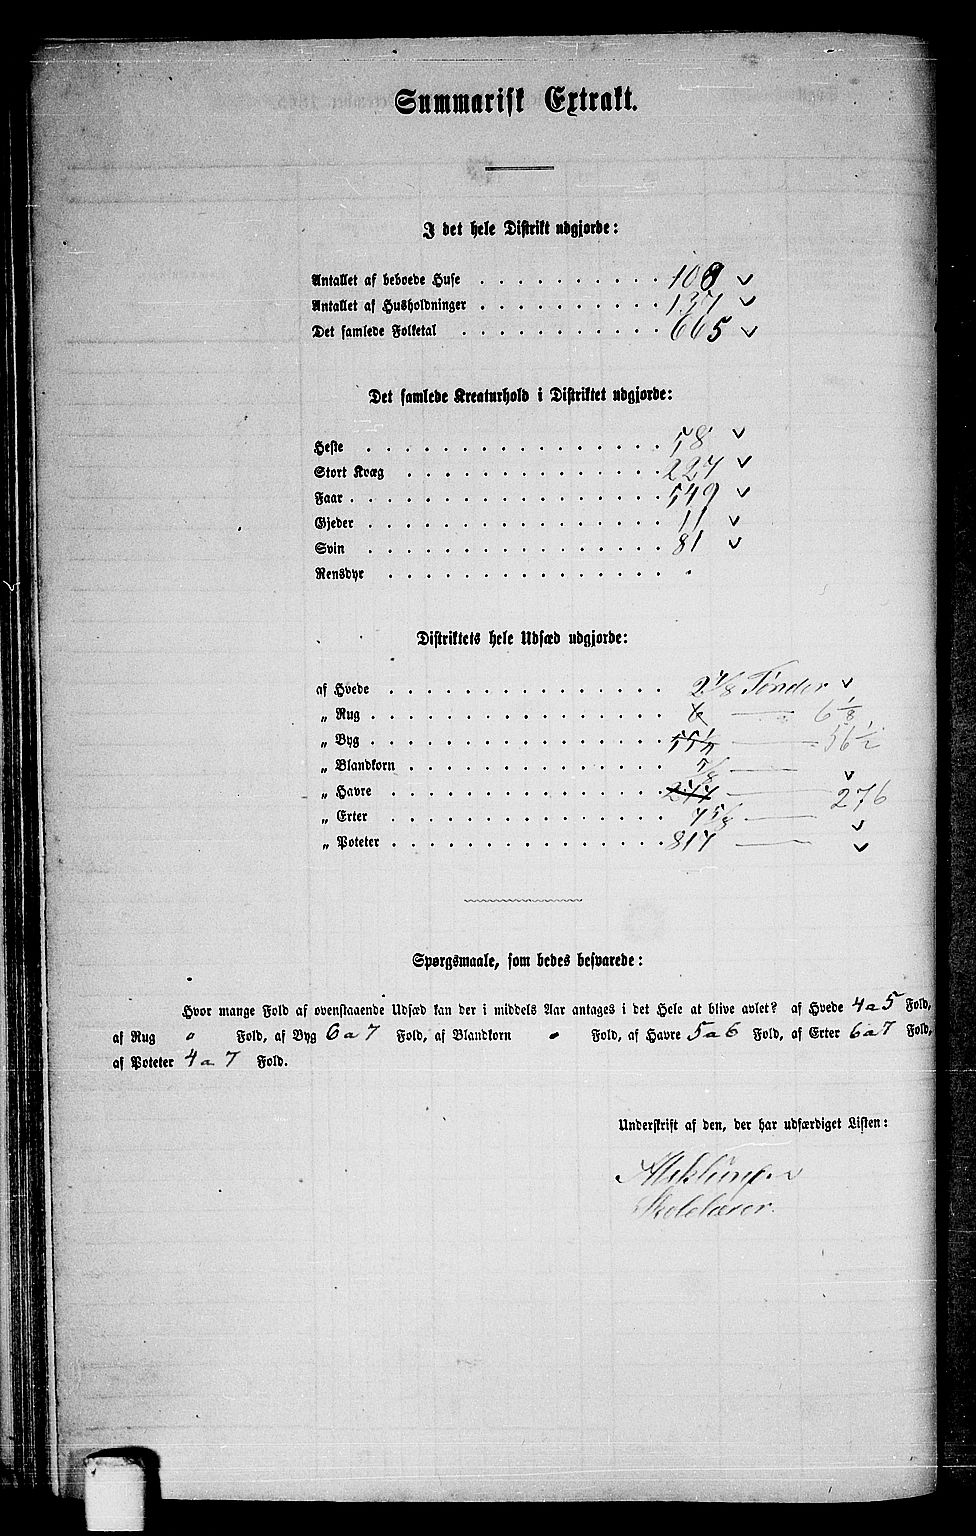 Summarisk Extrakt.
I det hele Distrikt udgjorde:
Antallet af beboede Huse . . . . . . . . . . 108 v
Antallet af Husholdninger . . . . . . . . . . 137 v
Det samlede Folketal . . . . . . . . . . . 665 v
Det samlede Kreaturhold i Distriktet udgjorde:
Heste . . . . . . . . . . . . . . . . 58 v
Stort Kvæg . . . . . . . . . . . . . . 227 v
Faar . . . . . . . . . . . . . . . . . 549 v
Gjeder . . . . . . . . . . . . . . . . 11 v
Svin . . . . . . . . . . . . . . . . 81 v
Rensdyr . . . . . . . . . . . . . . . .
Distriktets hele Udsæd udgjorde:
af Hvede . . . . . . . . . . . . . . . 2 7/8 Tønder v
„ Rug . . . . . . . . . . . . . . . . 6 — 6 1/8
„ Byg . . . . . . . . . . . . . . . . 55 1/2 — 56 1/2
„ Blandkorn . . . . . . . . . . . . . 7/8 —
„ Havre . . . . . . . . . . . . . . . 277 — v 276
„ Erter . . . . . . . . . . . . . . . 7 5/8 — v
„ Poteter . . . . . . . . . . . . . . . 817 — v
Spørgsmaale, som bedes besvarede:
Hvor mange Fold af ovenstaaende Udsæd kan der i middels Aar antages i det Hele at blive avlet? af Hvede 4 a 5 Fold,
af Rug " Fold, af Byg 6 a 7 Fold, af Blandkorn • Fold, af Havre 5 a 6 Fold, af Erter 6 a 7 Fold,
af Poteter 4 a 7 Fold.
Underskrift af den, der har udfærdiget Listen:
Skolelærer.